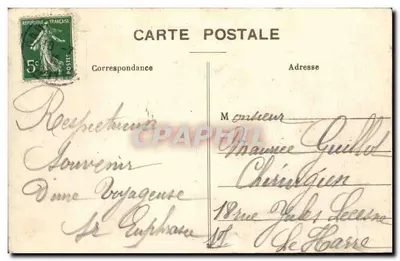 CARTE POSTALE
RÉPUBLIQUE FRANÇAISE
5c
POSTES
Correspondance
Respectueux
Souvenir
D'une Voyageuse
Sr Euphrasie
Adresse
Monsieur
Maurice Guillot
Chirurgien
18 rue Jules Lecesne
Le Havre
CPAPHIL